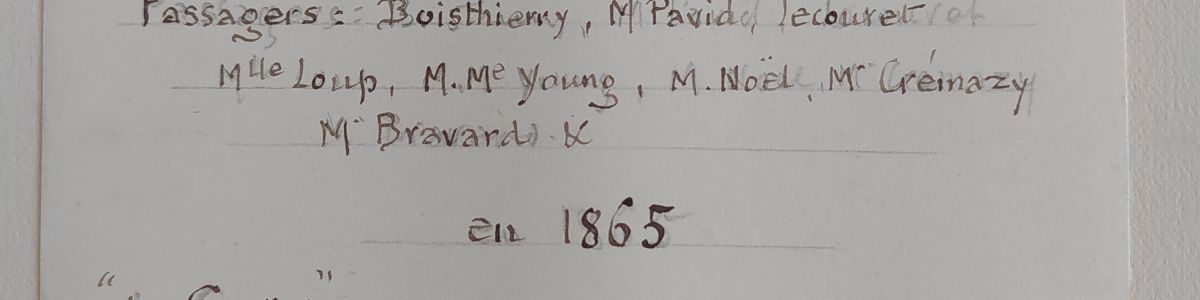 Passagers : Boisthierry, M Pavid, lecouret
Mlle Loup, M. Me Young, M. Noël, Mr Créinazy
M Bravard &
en 1865
“ ”